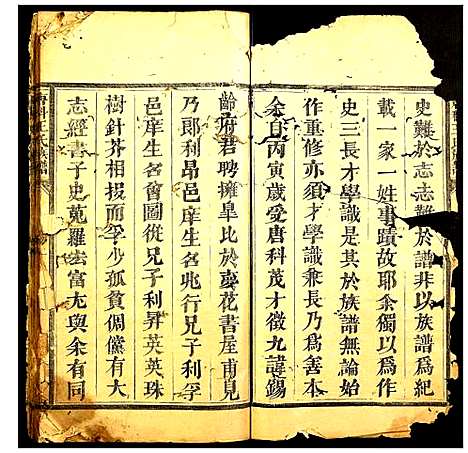 史難於志志難於譜非以族譜爲紀
載一家一姓事蹟故耶余獨以爲作
史三長才學識是其於族譜無論始
作重修亦須才學識兼長乃爲善本
余自丙寅歲受唐科茂才徵九諱錫
齡府君聘擁皐比於藜花書屋甫見
乃郎利昂邑庠生名兆行兄子利孚
邑庠生名會圖從兄子利昇英英珠
樹針芥相投而孚少孤貧倜儻有大
志經書子史蒐羅宏富尤與余有同
唐科王氏族譜